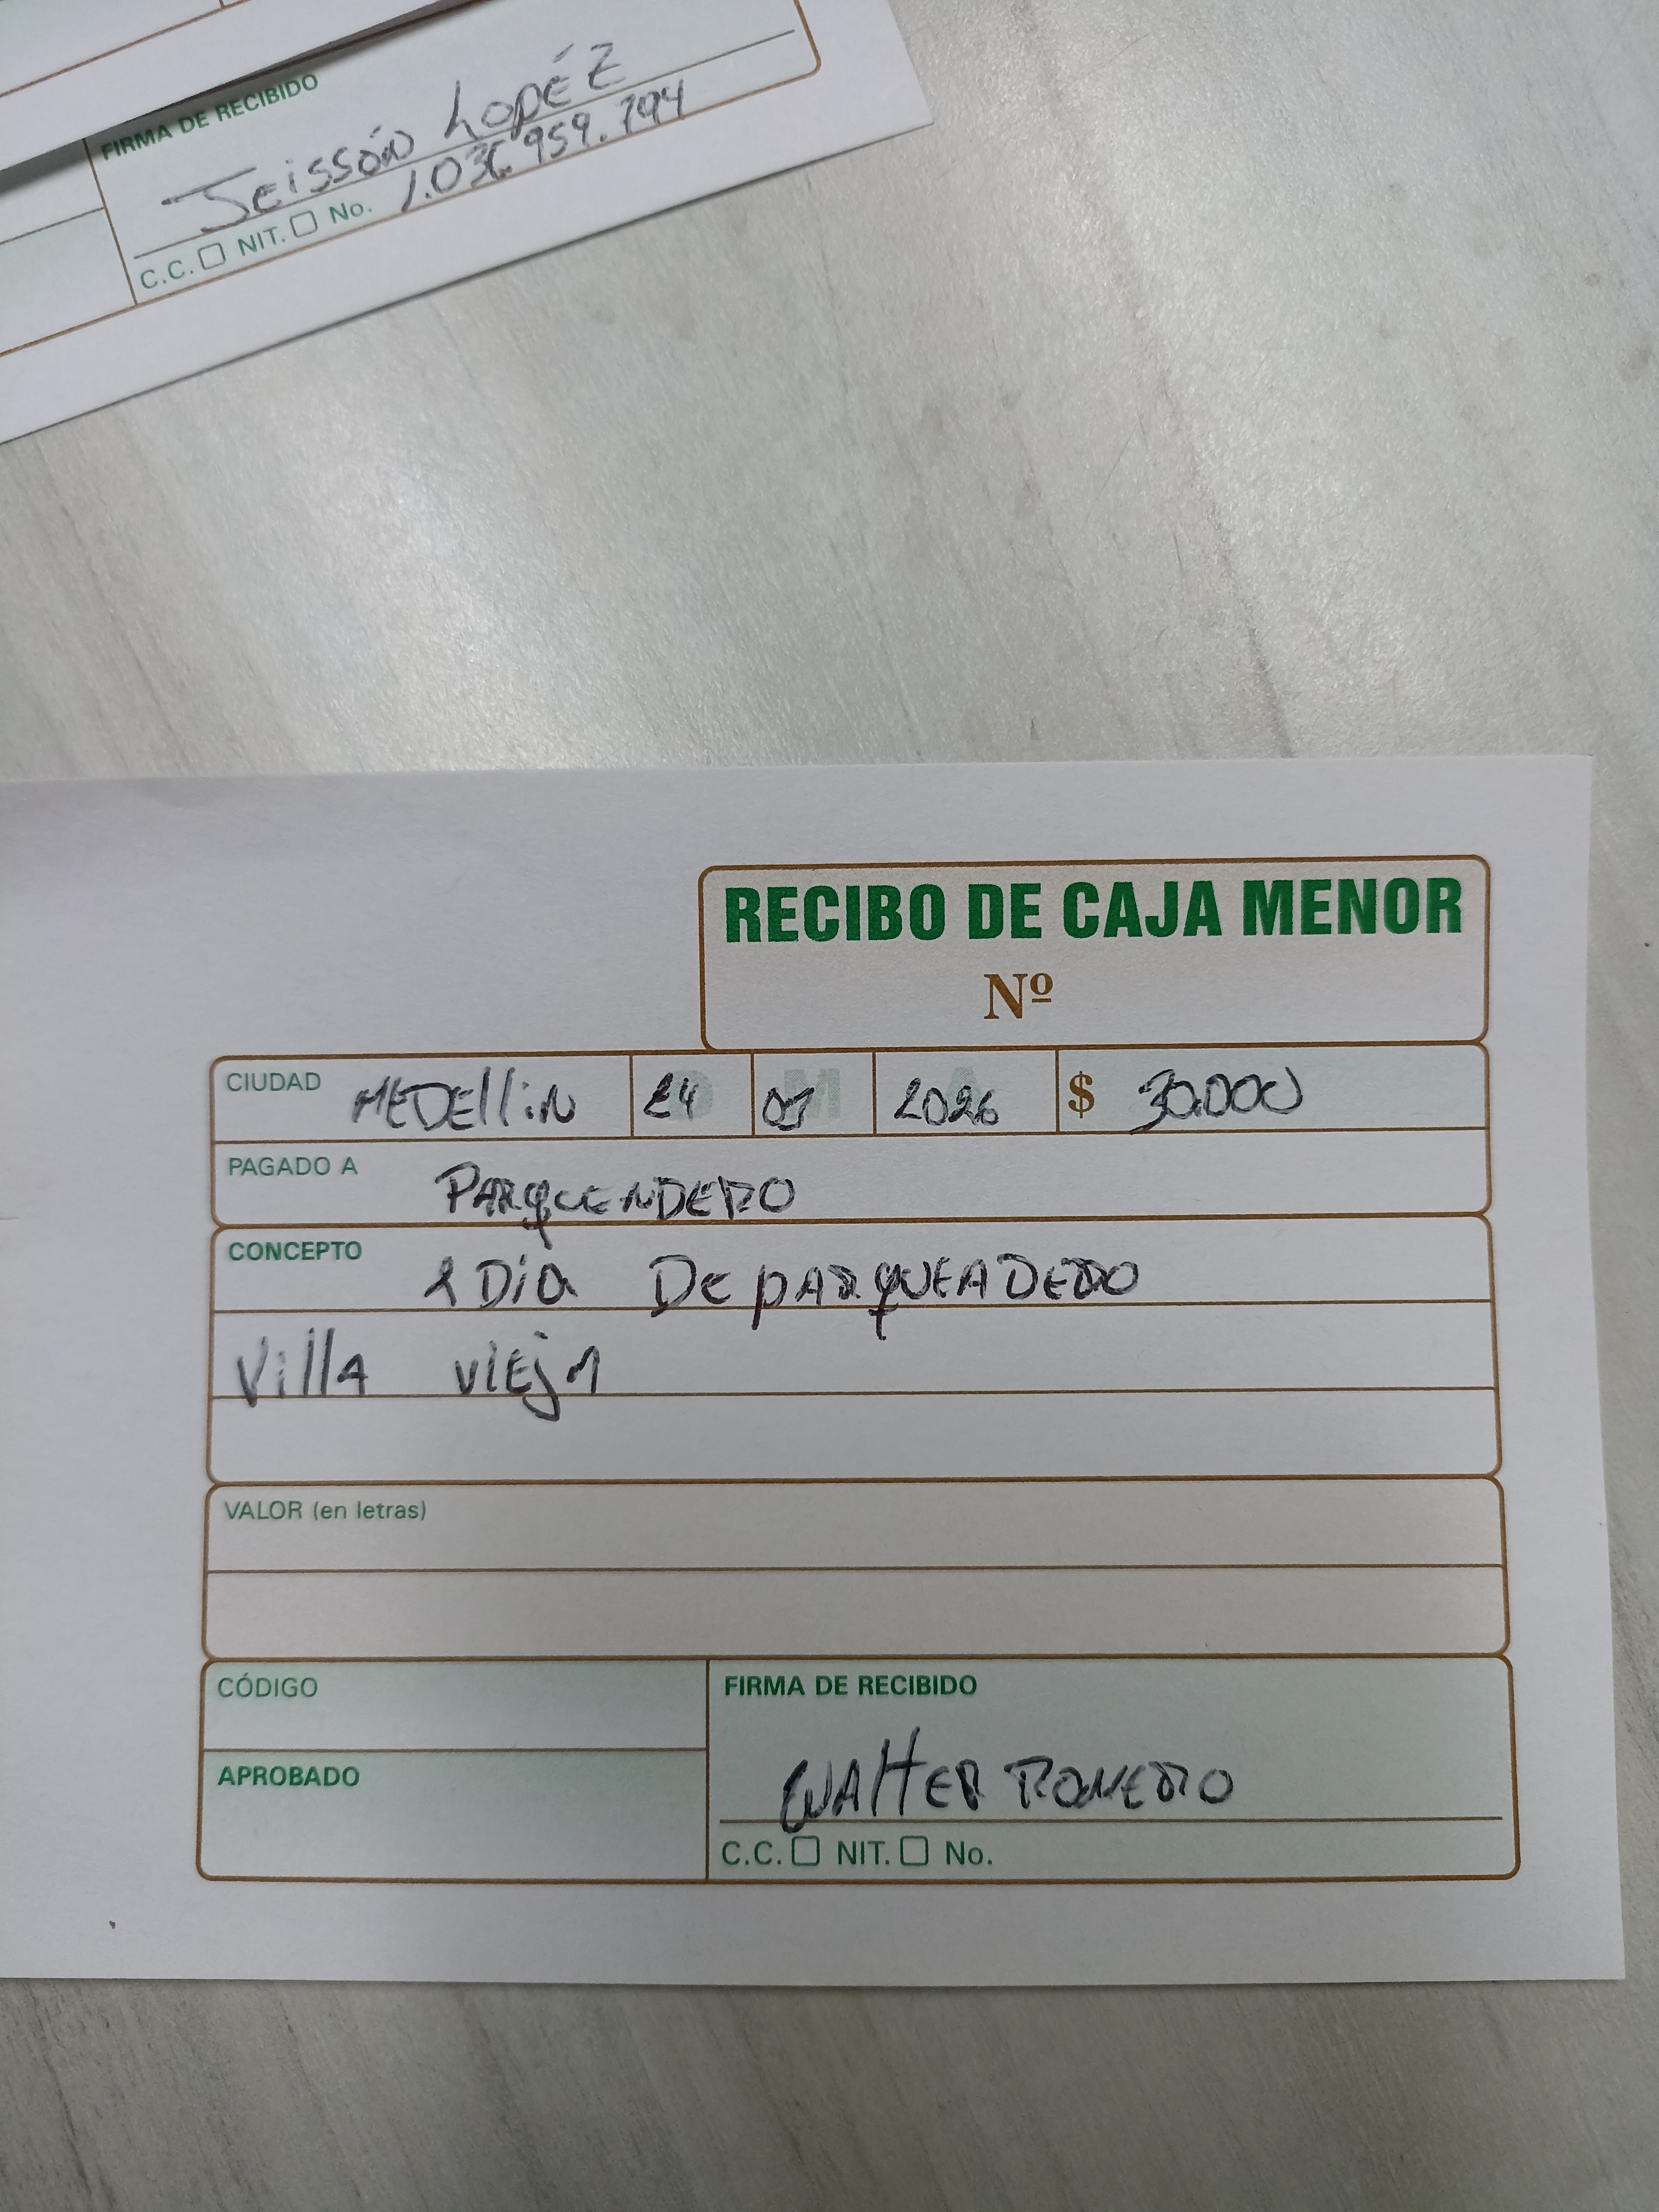 FIRMA DE RECIBIDO
Jeissón Lopéz
C.C. NIT. No. 1.036.959.794
RECIBO DE CAJA MENOR
Nº
CIUDAD MEDElliN 24 01 2026 $ 30.000
PAGADO A PARQUENDERO
CONCEPTO 1 Dia De pARQUEADERO
Villa viEjA
VALOR (en letras)
CÓDIGO
FIRMA DE RECIBIDO
APROBADO
WAltER ROMERO
C.C. NIT. No.